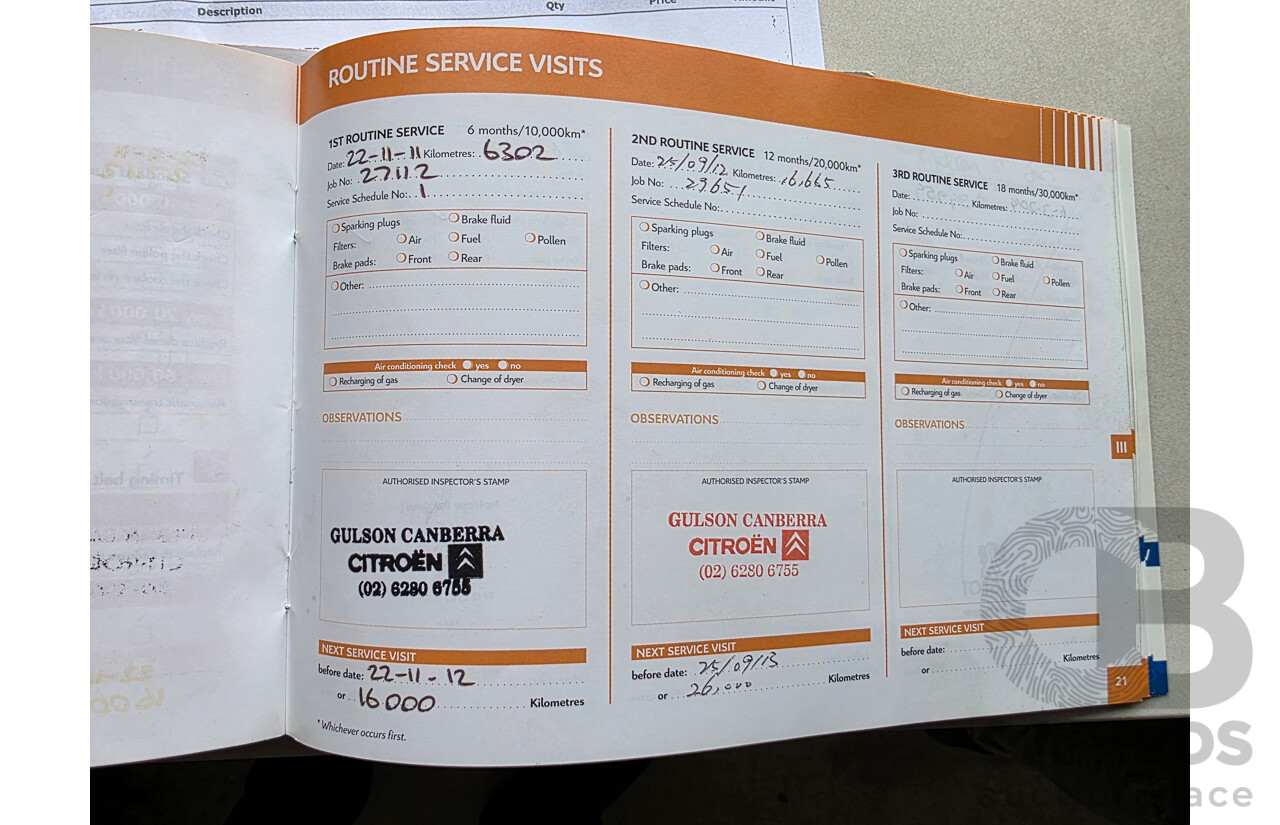 Description Qty Price
ROUTINE SERVICE VISITS
1ST ROUTINE SERVICE 6 months/10,000km*
Date: 22-11-11 Kilometres: 6302
Job No: 27112
Service Schedule No: 1
Sparking plugs Brake fluid
Filters: Air Fuel Pollen
Brake pads: Front Rear
Other:
Air conditioning check yes no
Recharging of gas Change of dryer
OBSERVATIONS
AUTHORISED INSPECTOR'S STAMP
GULSON CANBERRA
CITROËN
(02) 6280 6755
NEXT SERVICE VISIT
before date: 22-11-12
or 16000 Kilometres
*Whichever occurs first.
2ND ROUTINE SERVICE 12 months/20,000km*
Date: 25/09/12 Kilometres: 16,665
Job No: 29651
Service Schedule No:
Sparking plugs Brake fluid
Filters: Air Fuel Pollen
Brake pads: Front Rear
Other:
Air conditioning check yes no
Recharging of gas Change of dryer
OBSERVATIONS
AUTHORISED INSPECTOR'S STAMP
GULSON CANBERRA
CITROËN
(02) 6280 6755
NEXT SERVICE VISIT
before date: 25/09/13
or 26,000 Kilometres
3RD ROUTINE SERVICE 18 months/30,000km*
Date: Kilometres:
Job No:
Service Schedule No:
Sparking plugs Brake fluid
Filters: Air Fuel Pollen
Brake pads: Front Rear
Other:
Air conditioning check yes no
Recharging of gas Change of dryer
OBSERVATIONS
AUTHORISED INSPECTOR'S STAMP
NEXT SERVICE VISIT
before date:
or Kilometres
III
21